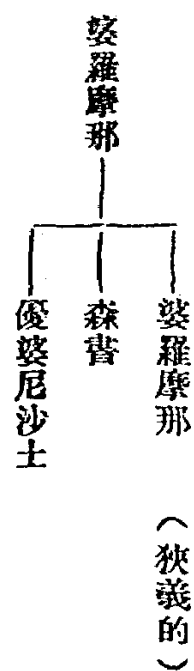 婆羅摩那
婆羅摩那（狹義的）
森書
優婆尼沙士